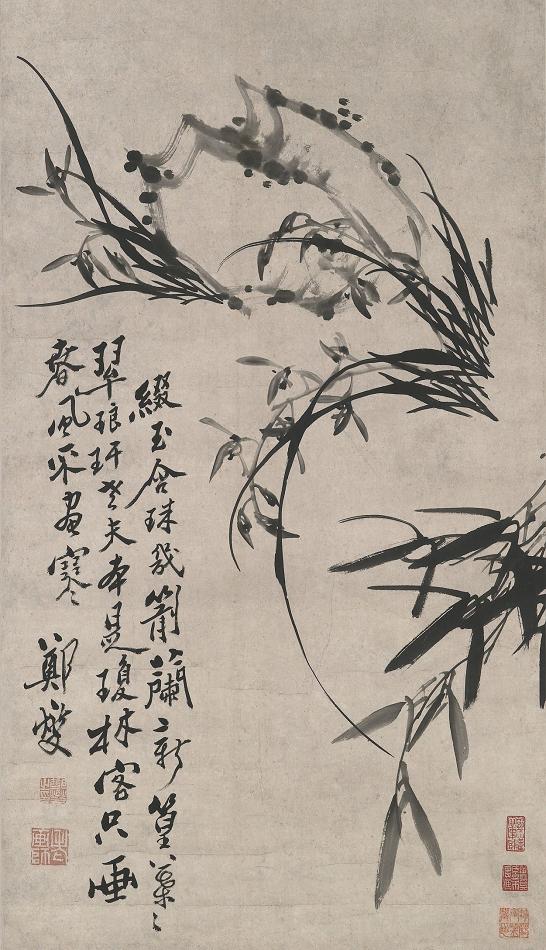 綴玉含珠幾箭蘭新篁葉〻
翠琅玕老夫本是瓊林客只画
春風不畫寒
鄭燮